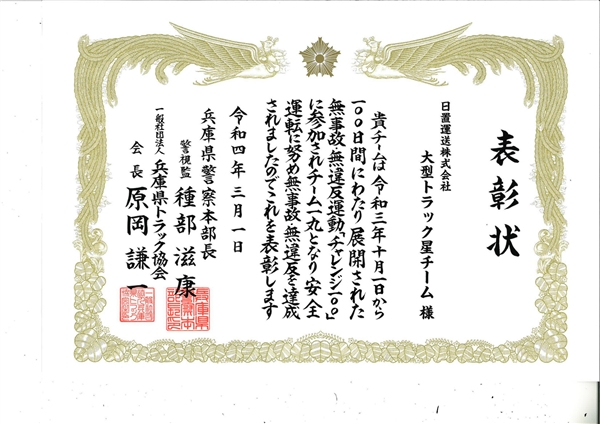 表彰状
日置運送株式会社
大型トラック星チーム 様
貴チームは令和三年十月一日から
一〇〇日間にわたり展開された
無事故・無違反運動「チャレンジ一〇〇」
に参加されチーム一丸となり安全
運転に努め無事故・無違反を達成
されましたのでこれを表彰します
令和四年三月一日
兵庫県警察本部長
警視監 種部滋康
一般社団法人 兵庫県トラック協会
会長 原岡謙一